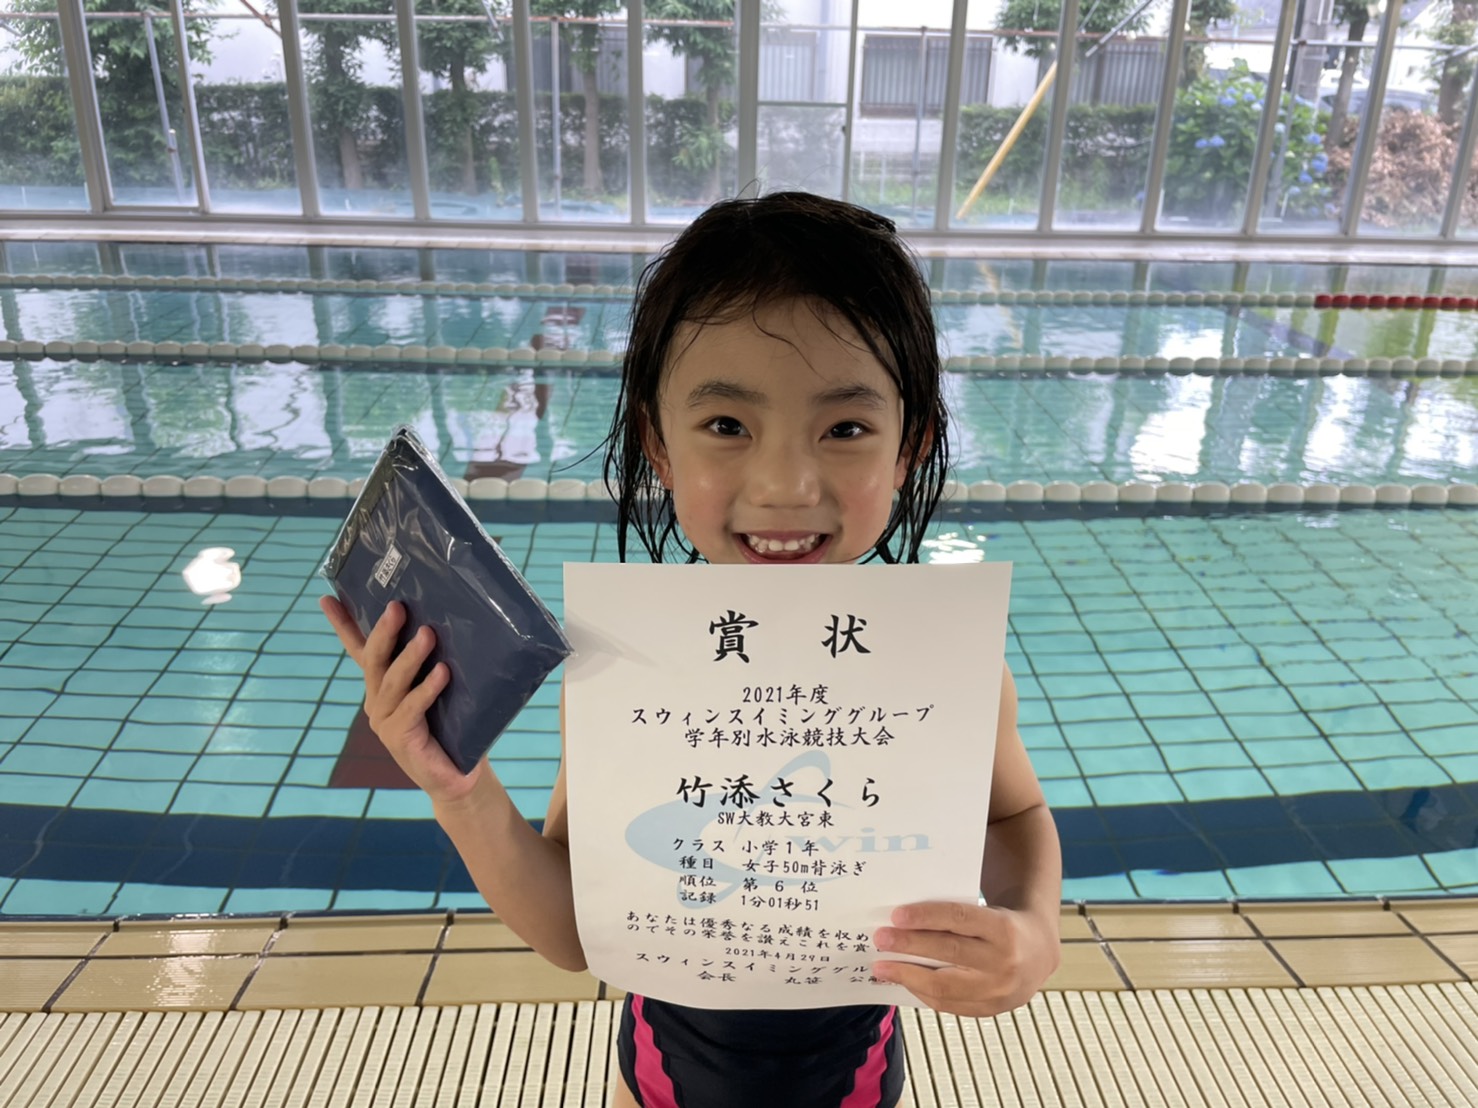 賞 状
2021年度
スウィンスイミンググループ
学年別水泳競技大会
竹添さくら
SW大教大宮東
クラス 小学1年
種目 女子50m背泳ぎ
順位 第 6 位
記録 1分01秒51
あなたは優秀なる成績を収め
のでその栄誉を讃えこれを賞
2021年4月29日
スウィンスイミンググル
会長 丸笹 公
Swin